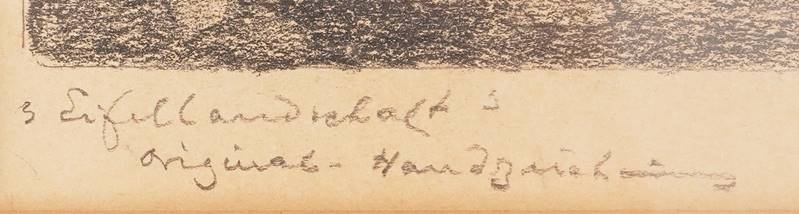 „Eifellandschaft“
Original-Handzeichnung